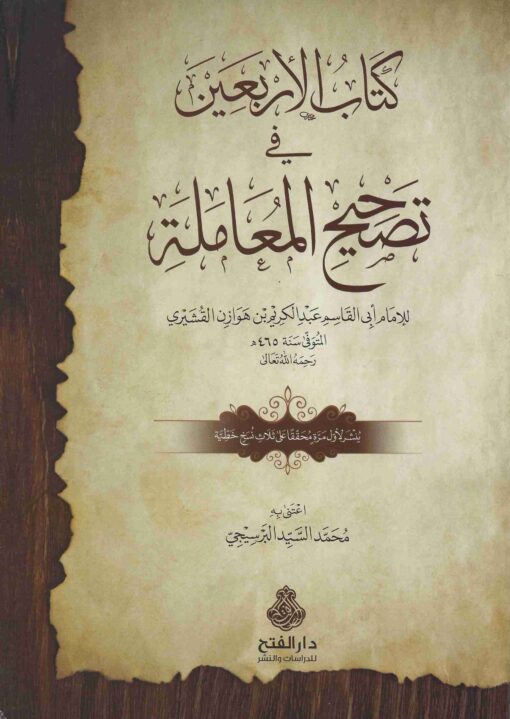 كِتَابُ الأَرْبَعِيْنَ
فِي
تَصْحِيْحِ المُعَامَلَةِ
للإِمَامِ أَبِي القَاسِمِ عَبْدِ الكَرِيْمِ بْنِ هَوَازِن القُشَيْرِي
المُتَوَفَّى سَنَة ٤٦٥هـ
رَحِمَهُ اللهُ تَعَالَى
يُنْشَرُ لِأَوَّلِ مَرَّةٍ مُحَقَّقًا عَلَى ثَلَاثِ نُسَخٍ خَطِّيَّة
اعْتَنَى بِهِ
مُحَمَّد السَّيِّد البَرْسِيْجِيّ
دار الفتح
للدراسات والنشر